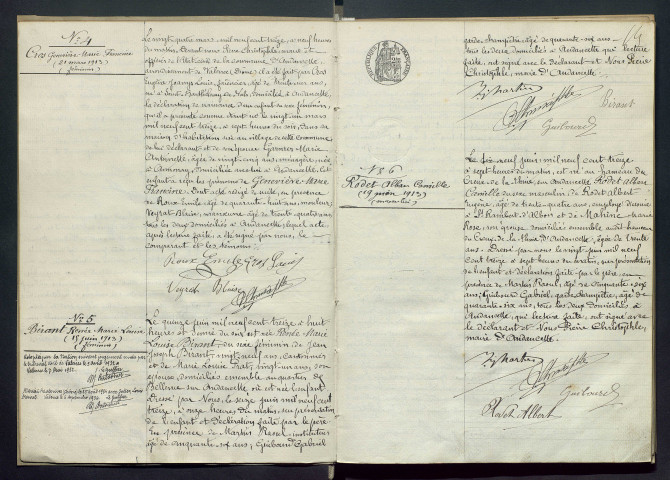 N° 4
Cros Geneviève Marie Francine
(21 mars 1913)
(féminin)
Le vingt quatre mars, mil neuf cent treize, à neuf heures
du matin, Devant nous Pierre Christophle, maire et
officier de l'état civil de la commune d'Andancette,
arrondissement de Valence, Drôme, il a été fait par Cros
Louis, âgé de
né à Saint Barthélemy de Vals, domicilié à Andancette,
la déclaration de naissance d'un enfant du sexe féminin,
qu'il a présenté comme étant né le vingt un mars
mil neuf cent treize, à sept heures du soir, dans sa
maison d'habitation sise au village de cette commune
de lui déclarant et de son épouse Marie
Antoinette, âgée de vingt cinq ans, ménagère, née
à Annonay, domiciliée avec lui à Andancette. Cet
enfant a reçu les prénoms de Geneviève Marie
Francine. Dont acte rédigé de suite, en présence
de Roux Emile âgé de quarante huit ans,
Veyrat Blaise, âgé de trente quatre ans
tous les deux domiciliés à Andancette, lequel acte
après lecture faite, a été signé par nous, le
comparant et les témoins.
Roux Emile Cros Louis
Veyrat Blaise
Christophle
N° 5
Bérant Renée Marie Louise
(15 juin 1913)
(féminin)
Le quinze juin mil neuf cent treize à huit
heures et demie du soir est née Renée Marie
Louise Bérant, du sexe féminin de Jean
Joseph Bérant vingt neuf ans, cantonnier
et de Marie Louise Frat, vingt un ans, son
épouse domiciliés ensemble au quartier de
Bellevue sur Andancette où est née l'enfant
Dressé par Nous, le seize juin mil neuf cent
treize, à onze heures du matin, sur présentation
de l'enfant et déclaration faite par le père
en présence de Martin Raoul, instituteur
âgé de cinquante six ans, Guibourd Gabriel
garde champêtre, âgé de quarante six ans
tous les deux domiciliés à Andancette qui lecture
faite, ont signé avec le déclarant et Nous Pierre
Christophle, maire d'Andancette.
R. Martin
Christophle
Bérant
Guibourd
N° 6
Rodet Albert Camille
(19 juin 1913)
(masculin)
Le dix neuf juin mil neuf cent treize
à sept heures du matin, est né au hameau du
Creux de la Thine, sur Andancette Rodet Albert
Camille du sexe masculin, de Rodet Albert
Eugène, âgé de trente quatre ans, employé d'usine
à St Rambert d'Albon et de Marie
Rose, son épouse domiciliés ensemble audit hameau
du Creux, de la Thine d'Andancette, âgée de trente
ans. Dressé par nous le vingt juin mil neuf
cent treize à sept heures du matin, sur présentation
de l'enfant et déclaration faite par le père, en
présence de Martin Raoul, âgé de cinquante six
ans, Guibourd Gabriel, garde champêtre, âgé de
quarante six ans, tous les deux domiciliés à
Andancette, qui, lecture faite, ont signé avec
le déclarant et Nous Pierre Christophle,
maire d'Andancette.
R. Martin
Christophle
Guibourd
Rodet Albert